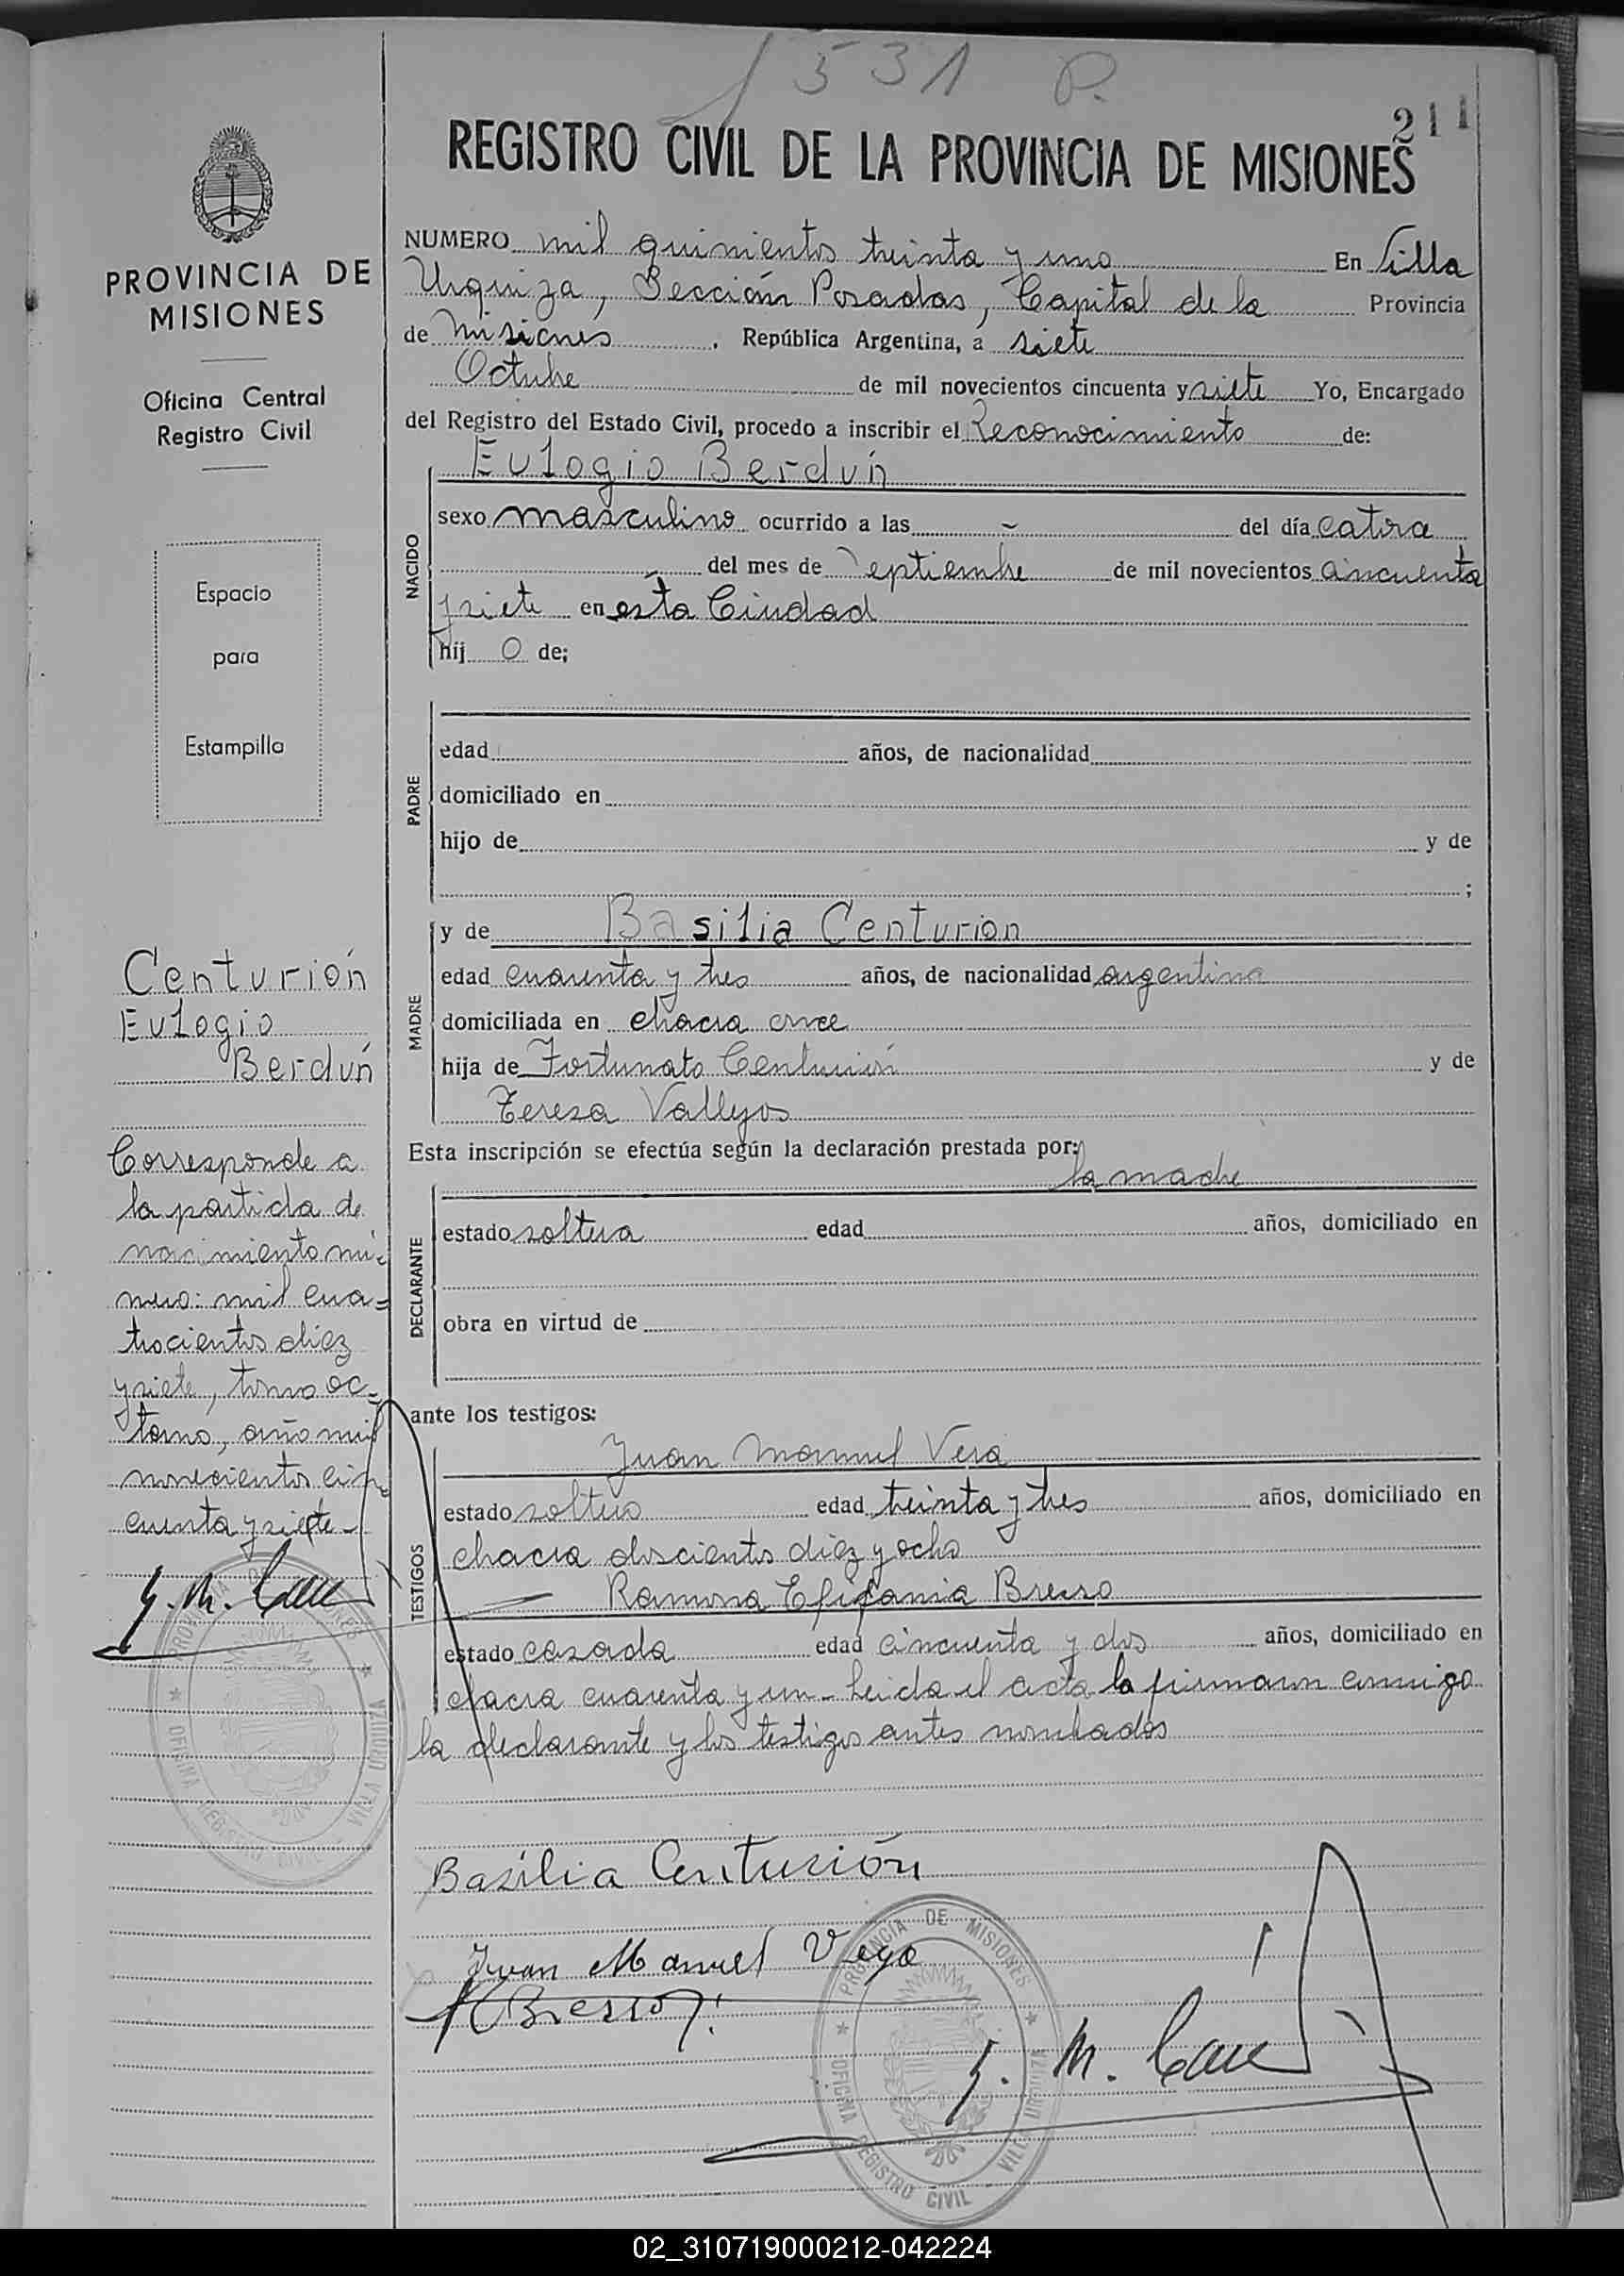 1531 P.
211
REGISTRO CIVIL DE LA PROVINCIA DE MISIONES
PROVINCIA DE
MISIONES
Oficina Central
Registro Civil
Espacio
para
Estampilla
Centurión
Eulogio
Berdún
Corresponde a
la partida de
nacimiento nú-
mero: mil cua=
trocientos diez
y siete, tomo oc-
tavo, año mil
novecientos cin-
cuenta y siete-
NUMERO mil quinientos treinta y uno En Villa
Urquiza, Sección Posadas, Capital de la Provincia
de Misiones, República Argentina, a siete
Octubre de mil novecientos cincuenta y siete Yo, Encargado
del Registro del Estado Civil, procedo a inscribir el Reconocimiento de:
Eulogio Berdún
NACIDO
sexo masculino ocurrido a las - del día catorce
del mes de Septiembre de mil novecientos cincuenta
y siete en esta Ciudad
hij o de;
PADRE
edad años, de nacionalidad
domiciliado en
hijo de y de
;
MADRE
y de Basilia Centurion
edad cuarenta y tres años, de nacionalidad argentina
domiciliada en chacra once
hija de Fortunato Centurión y de
Teresa Vallejos
Esta inscripción se efectúa según la declaración prestada por:
la madre
DECLARANTE
estado soltera edad años, domiciliado en
obra en virtud de
ante los testigos:
TESTIGOS
Juan Manuel Vera
estado soltero edad treinta y tres años, domiciliado en
chacra doscientos diez y ocho
Ramona Epifania Bresso
estado casada edad cincuenta y dos años, domiciliado en
chacra cuarenta y un- Leida el acta la firmaron conmigo
la declarante y los testigos antes nombrados
Basilia Centurión
Juan Manuel Vera
PROVINCIA DE MISIONES
OFICINA REGISTRO CIVIL VILLA URQUIZA
02_310719000212-042224